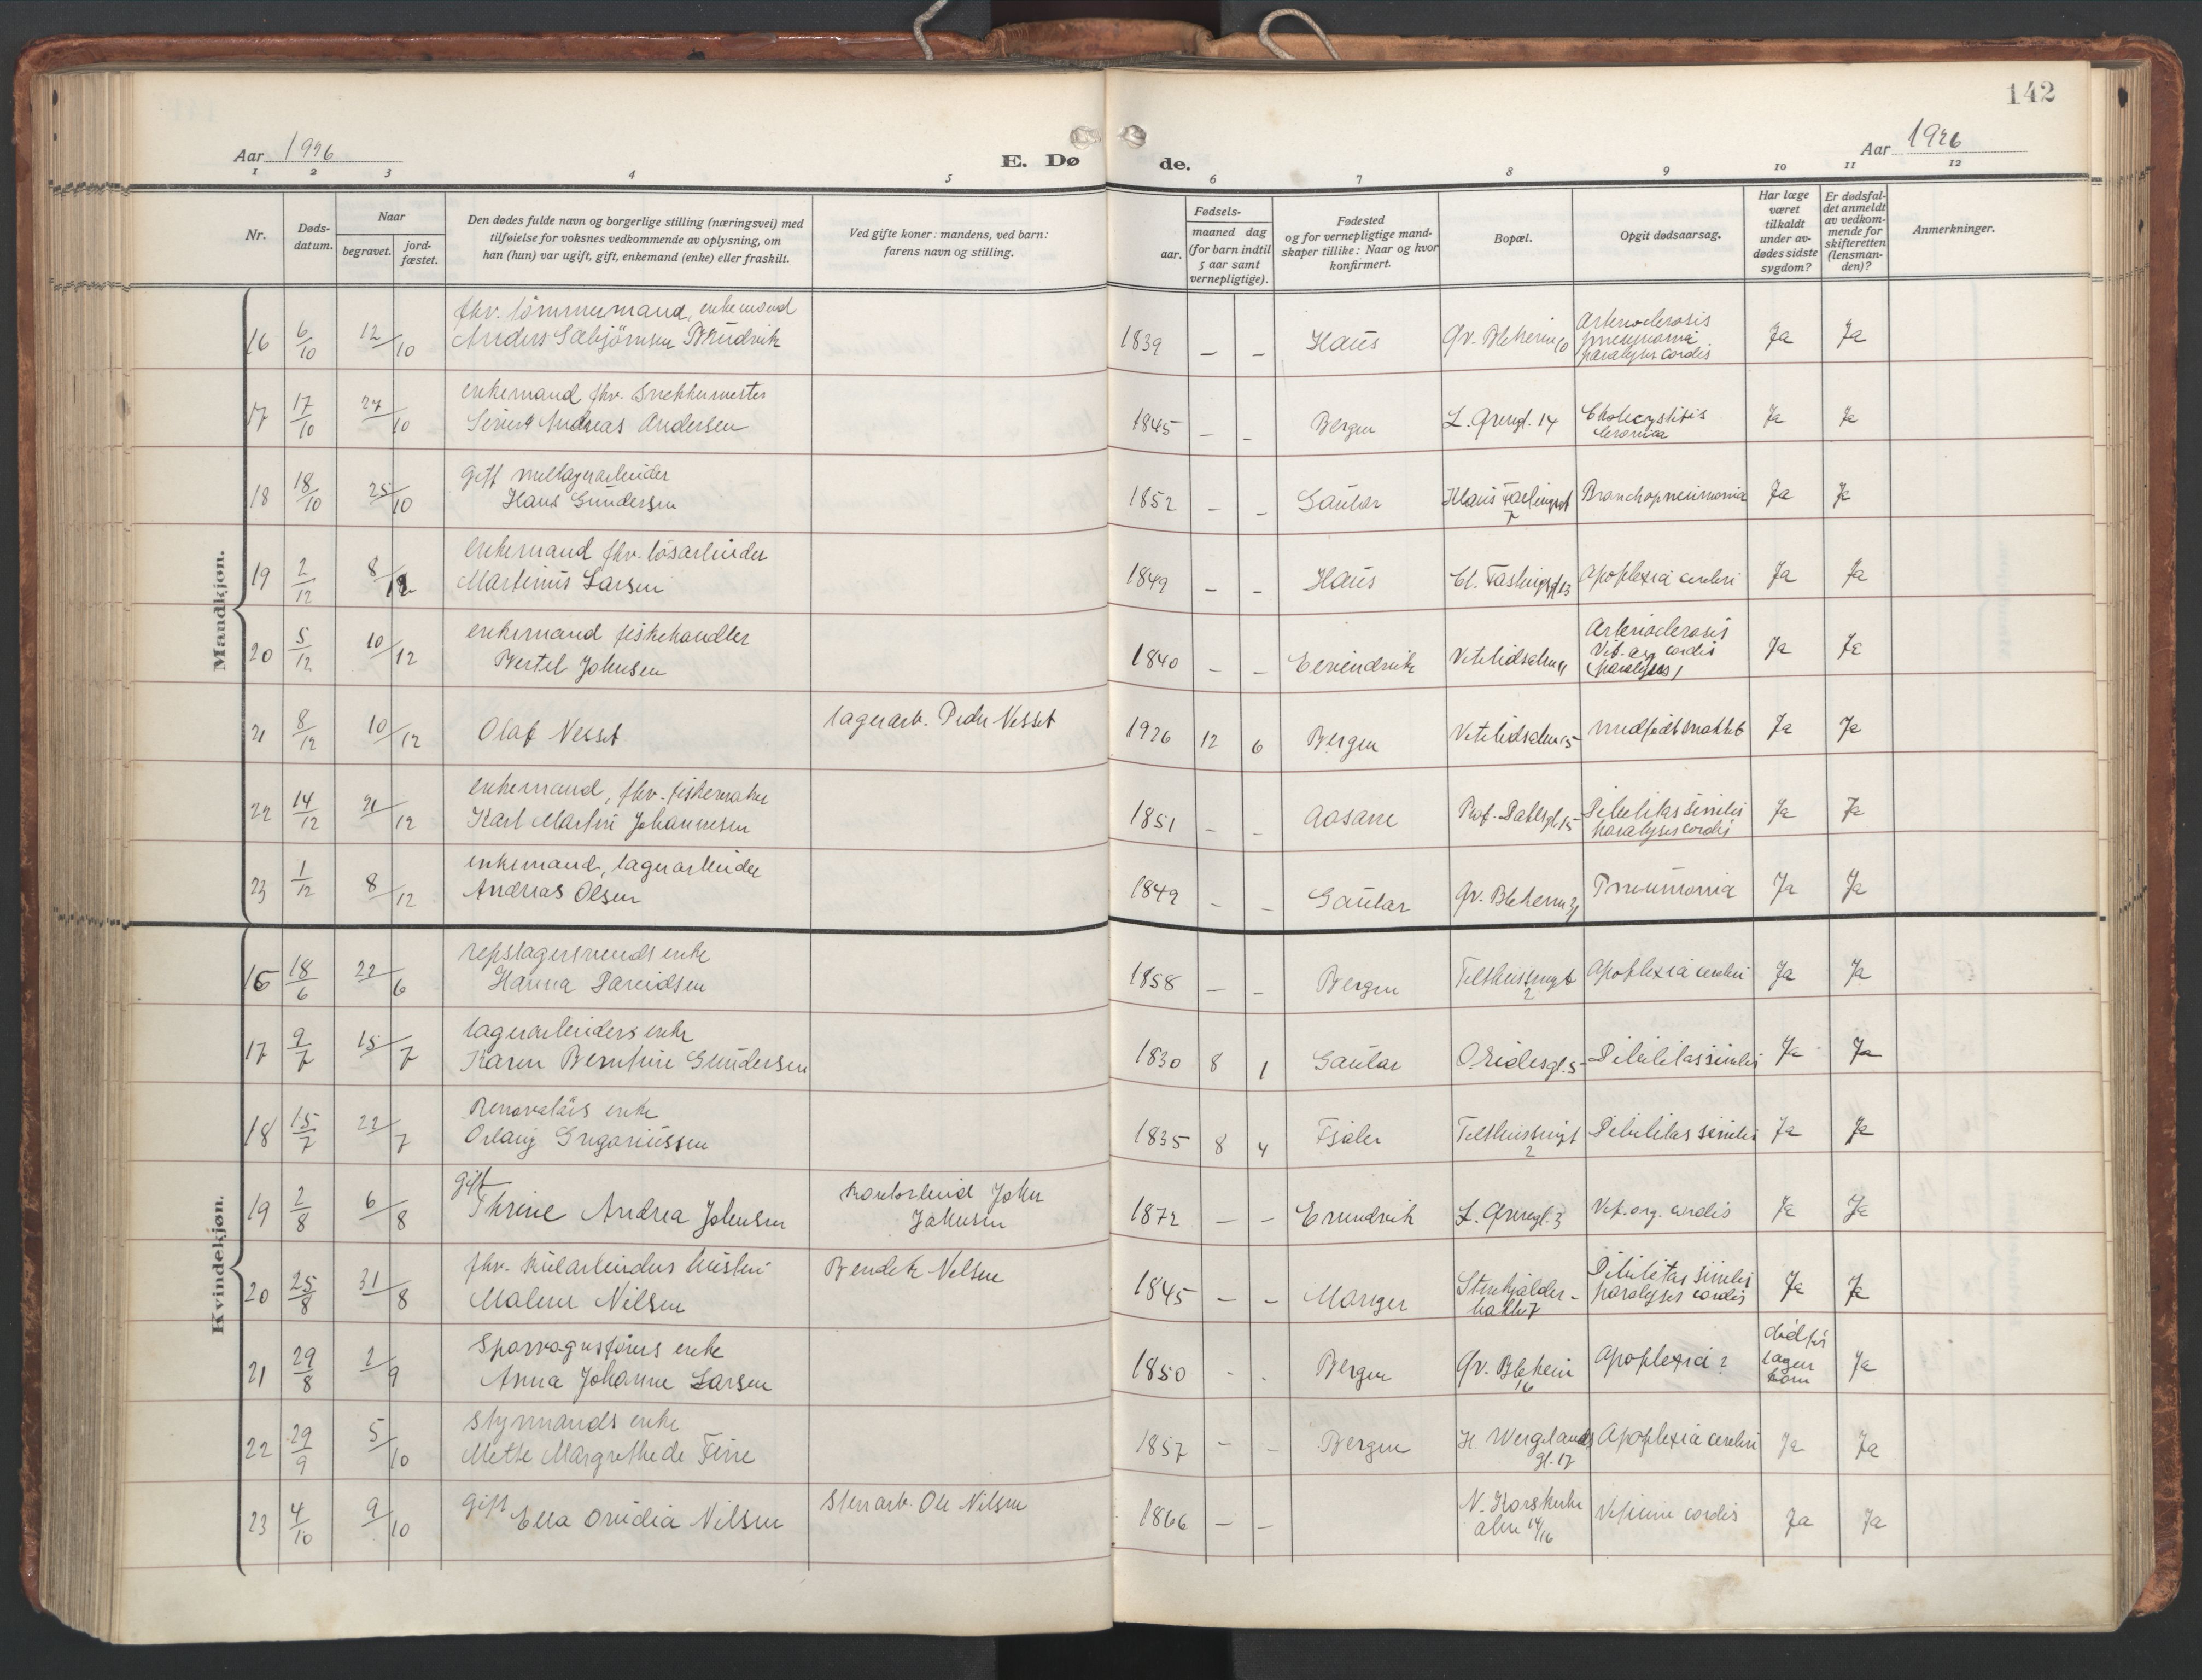 142
Aar 1926
E. Døde.
Aar 1926
1 2 3 4 5 6 7 8 9 10 11 12
Nr.
Dødsdatum.
Naar
begravet.
jordfæstet.
Den dødes fulde navn og borgerlige stilling (næringsvei) med
tilføielse for voksnes vedkommende av oplysning, om
han (hun) var ugift, gift, enkemand (enke) eller fraskilt.
Ved gifte koner: mandens, ved barn:
farens navn og stilling.
aar.
Fødsels-
maaned dag
(for barn indtil
5 aar samt
vernepligtige).
Fødested
og for vernepligtige mand-
skaper tillike: Naar og hvor
konfirmert.
Bopæl.
Opgit dødsaarsag.
Har læge
været
tilkaldt
under av-
dødes sidste
sygdom?
Er dødsfal-
det anmeldt
av vedkom-
mende for
skifteretten
(lensman-
den)?
Anmerkninger.
Mandkjøn.
fhv. tømmermand, enkemand
16 6/10 12/10 Anders Sæbjörnsen 1839 — — Haus Gv. Blekevei 10 Arteriosclerosis pneumonia paralysis cordis Ja Ja
enkemand fhv. Snekkermester
17 17/10 24/10 Sivert Andreas Andersen 1845 — — Bergen L. Øvregt. 14 Cholecystitis Ja Ja
gift
18 18/10 25/10 Hans Gundersen 1852 — — Gaular Klaus 7 Bronchopneumonia Ja Ja
enkemand fhv. løsarbeider
19 2/12 8/12 Martinus Larsen 1849 — — Haus Apoplexia cerebri Ja Ja
enkemand fiskehandler
20 5/12 10/12 Bertel Johnsen 1840 — — Eevindvik Arteriosclerosis Vit. org cordis (paralysis) Ja Ja
21 8/12 10/12 Olaf Nesset lagerarb. Peder Nesset 1926 12 6 Bergen Vetrlidsalm 15 medfödt svakhet Ja Ja
enkemand, fhv.
22 14/12 21/12 Karl Martin Johannesen 1851 — — Aasane Prof. Dahlsgt. 15 Debilitas senilis paralysis cordis Ja Ja
enkemand, lagerarbeider
23 1/12 8/12 Andreas Olsen 1849 — — Gaular Gv. Blekevei 31 Pneumonia Ja Ja
Kvindekjøn.
repslagersvends enke
16 18/6 22/6 Hanna Davidsen 1858 — — Bergen 2 Apoplexia cerebri Ja Ja
lagerarbeiders enke
17 9/7 15/7 Karen Berntine Gundersen 1830 8 1 Gaular Debilitas senilis Ja Ja
enke
18 15/7 22/7 Gregoriussen 1835 8 4 Fjaler 2 Debilitas senilis Ja Ja
gift
19 2/8 6/8 Thrine Andrea Johnsen John Johnsen 1872 — — L. Øvregt. 3 Vit. org. cordis Ja Ja
fhv. hustru
20 25/8 31/8 Malene Nilsen Bendik Nilsen 1845 — — Manger Stenkjelderbakken 7 Debilitas senilis paralysis cordis Ja Ja
Sporvognsförers enke
21 29/8 2/9 Anna Johanne Larsen 1850 - - Bergen Gv. Blekevei 16 Apoplexia? död för lægen kom Ja
Styrmands enke
22 29/9 5/10 Mette Margrethe de Fine 1857 — — Bergen H. Wergelands gt. 17 Apoplexia cerebri Ja Ja
gift
23 4/10 9/10 Ovidia Nilsen Stenarb. Ole Nilsen 1866 — — N. Korskirke alm 14/16 Vitium cordis Ja Ja